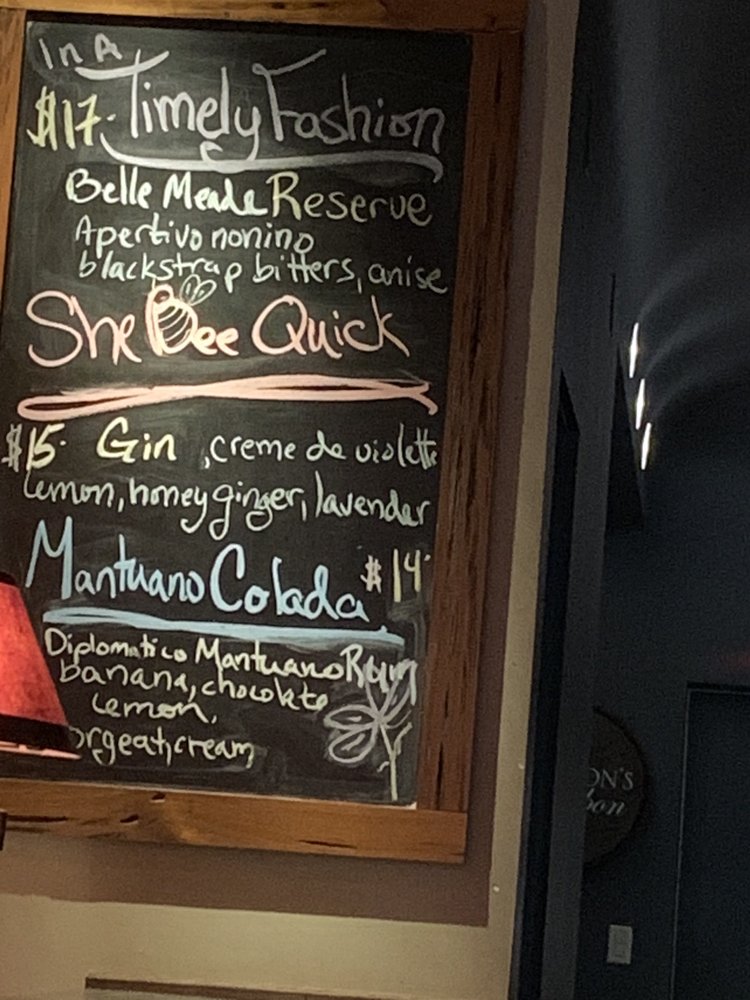 In A
$17. Timely Fashion
Belle Meade Reserve
Apertivo nonino
blackstrap bitters, anise
She Bee Quick
$15. Gin, creme de violette
Lemon, honey ginger, lavender
Mantuano Colada $14.
Diplomatico Mantuano Rum
banana, chocolate
Lemon,
orgeat, cream
ON'S